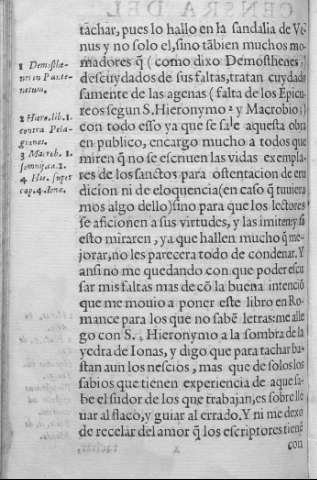 tachar, pues lo hallo en la sandalia de Ve
nus y no solo el, sino tãbien muchos mo
madores q̃ (como dixo Demosthenes 1)
descuydados de sus faltas, tratan cuydado
samente de las agenas (falta de los Epicu
reos segun S. Hieronymo 2 y Macrobio 3)
con todo esso ya que se sale aquesta obra
en publico, encargo mucho a todos que
miren q̃ no se escriuen las vidas exempla
res de los sanctos para ostentacion de eru
dicion ni de eloquencia (en caso q̃ tuuiera
mos algo dello) sino para que los lectores
se aficionen a sus virtudes, y las imiten y si
esto miraren, ya que hallen mucho q̃ me-
jorar, no les parecera todo de condenar. Y
ansi no me quedando con que poder escu
sar mis faltas mas de cõ la buena intenciõ
que me mouio a poner este libro en Ro-
mance para los que no sabẽ letras: me alle
go con S. 4 Hieronymo a la sombra de la
yedra de Ionas, y digo que para tachar ba-
stan aun los nescios, mas que de solos los
sabios que tienen experiencia de aquesa-
be el sudor de los que trabajan, es sobrelle
uar al flaco, y guiar al errado. Y ni me dexo
de recelar del amor q̃ los escriptores tienẽ
con
1 Demosthe-
nes in
2 Hiero. lib. 1.
contra Pela-
gianos.
3 Macrob. 1.
somni. ca. 2.
4 Hie. super
cap. 4. Ione.